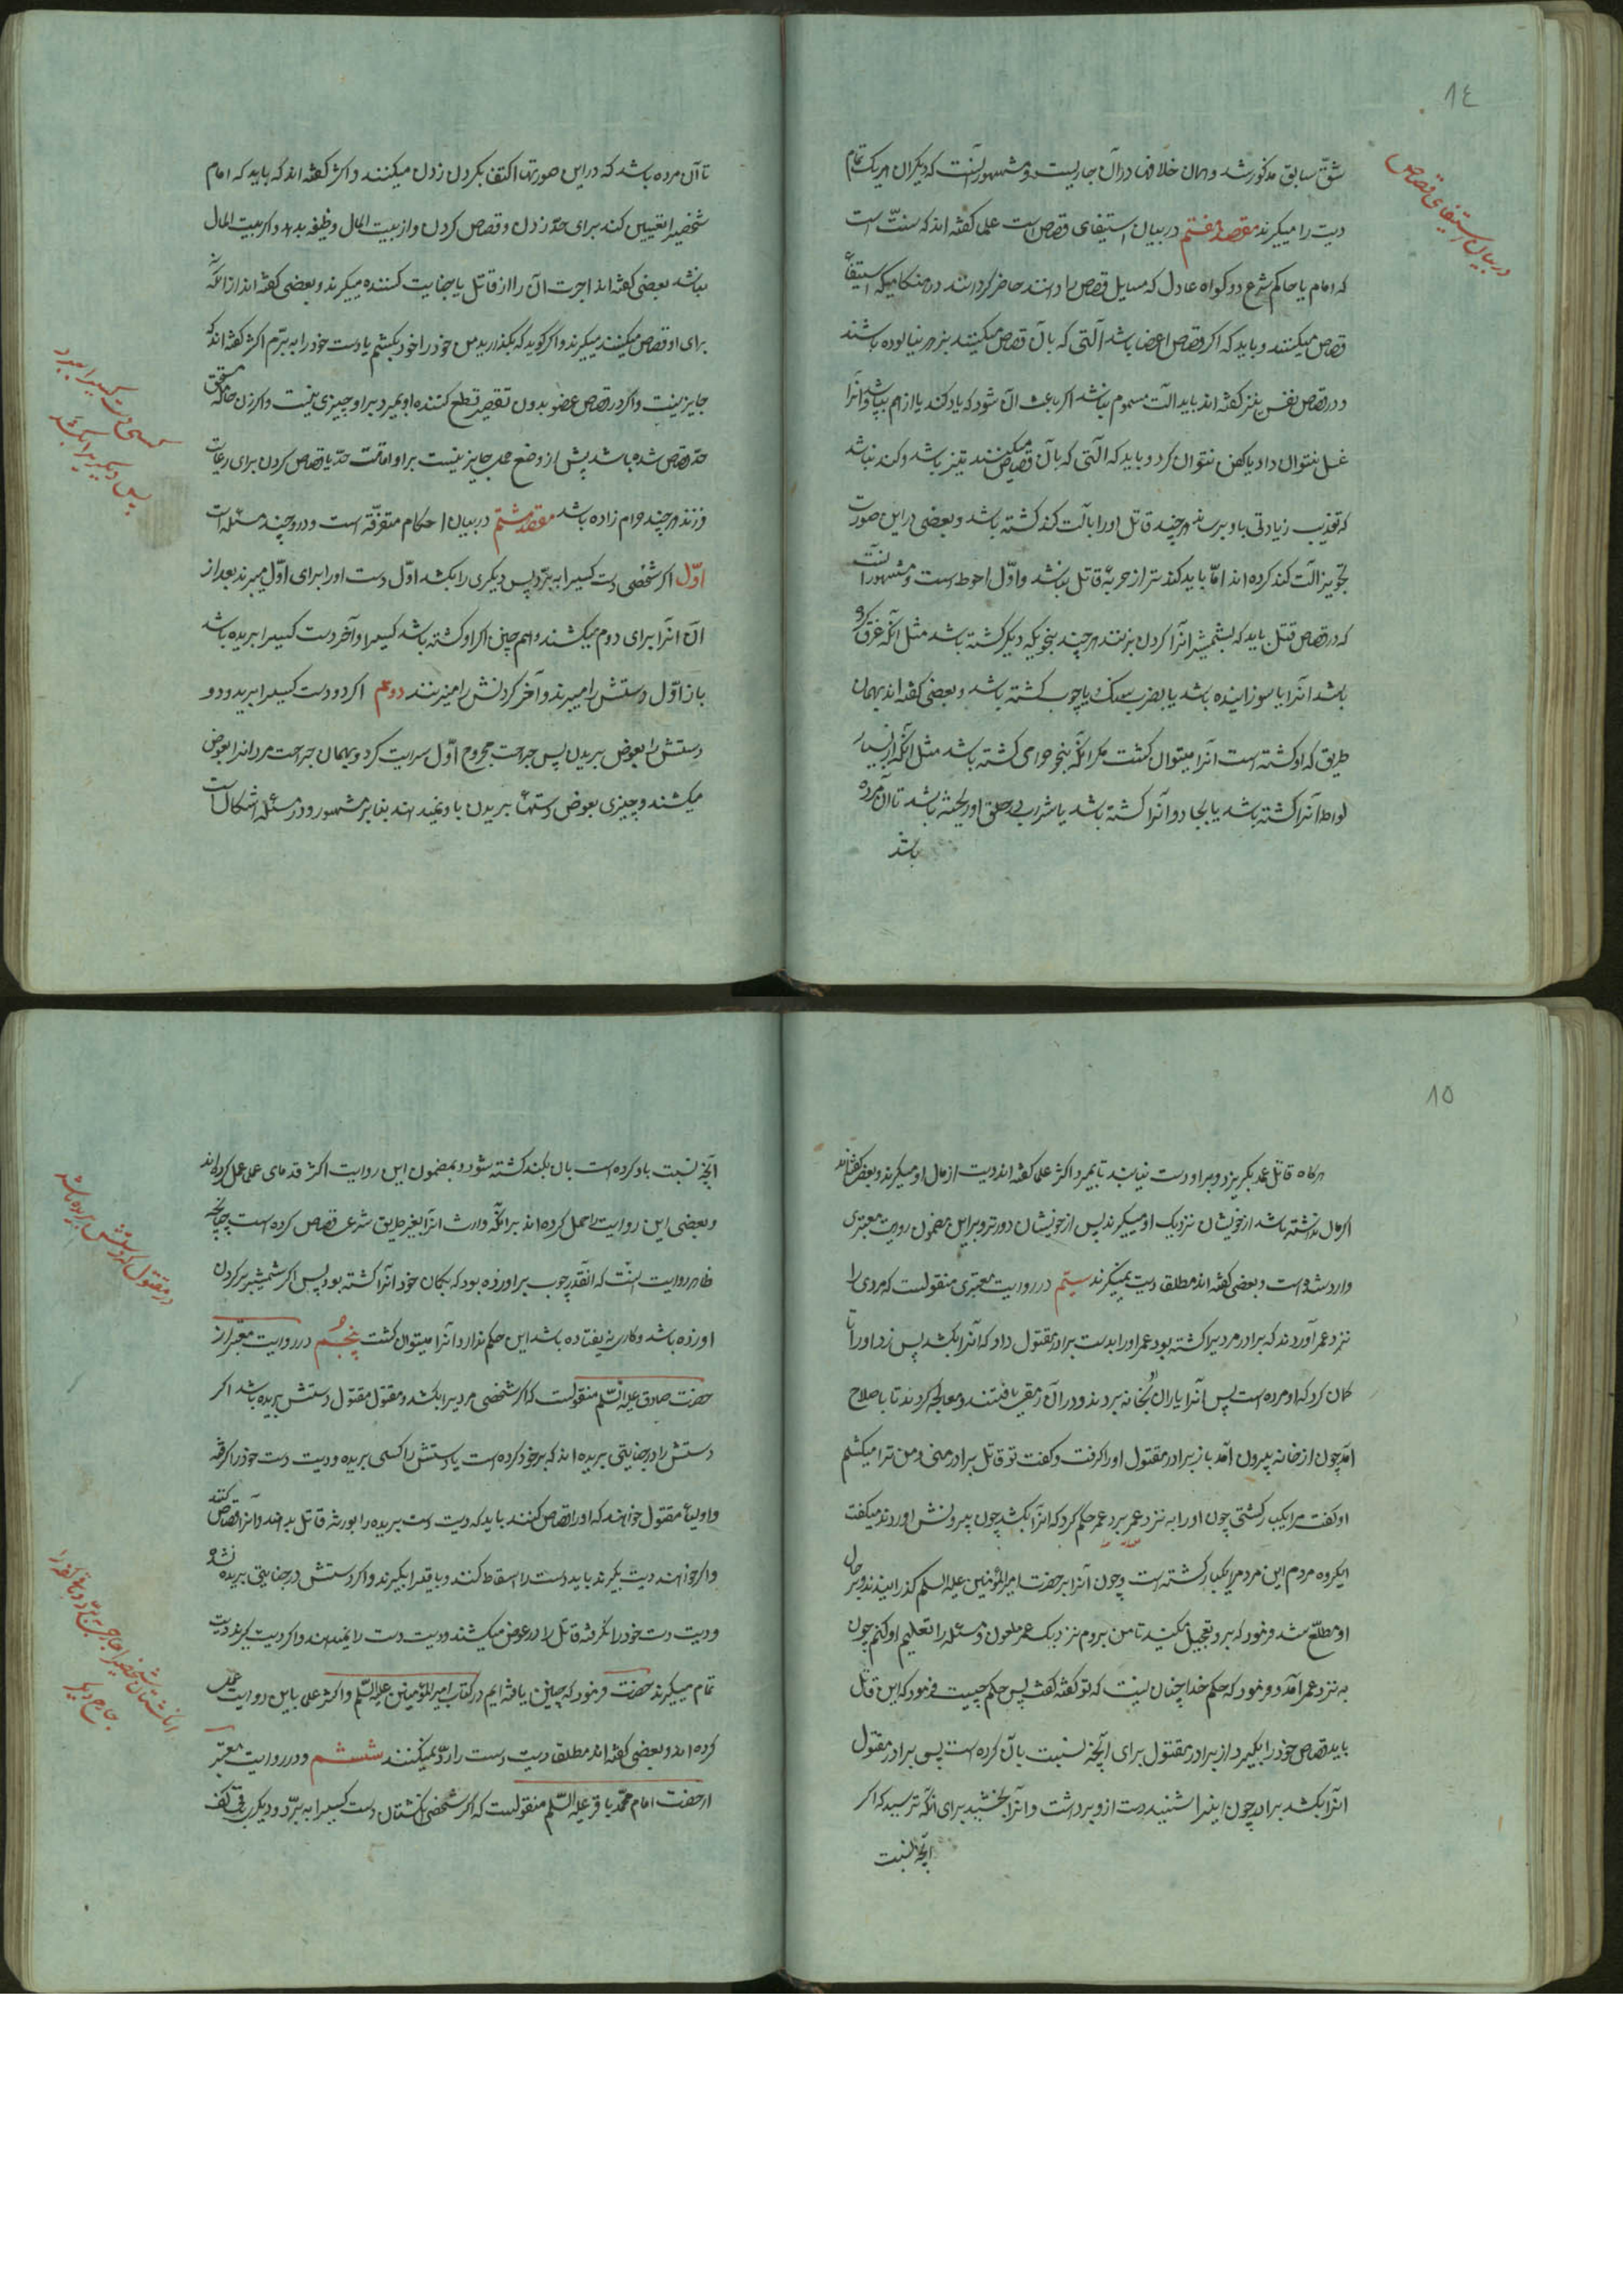 ١٤
در بیان استیفای قصاص
شقّ سابق مذکور شد و همان خلافها در آن جاریست و مشهور آنست که دیکران هر یک تمام
دیت را میکیرند مقصد هفتم در بیان استیفای قصاص است علما کفته اند که سنّت است
که امام یا حاکم شرع دو کواه عادل که مسایل قصاص را دانند حاضر کردانند در هنکامیکه استیفاء
قصاص میکنند و باید که اکر قصاص اعضا باشد آلتی که بآن قصاص میکنند بزهر نیالوده باشند
و در قصاص نفس نیز کفته اند باید آلت مسموم نباشد اکر باعث آن شود که باد کند یا از هم بپاشد و انرا
غسل نتوان داد یا کفن نتوان کرد و باید که آلتی که بآن قصاص میکنند تیز باشد و کند نباشد
که تعذیب زیادتی باو برسد هر چند قاتل اورا بآلت کند کشته باشد و بعضی در این صورت
تجویز آلت کند کرده اند امّا باید کندتر از حربهٔ قاتل نباشد و اوّل احوط است و مشهور آنست
که در قصاص قتل باید که بشمشیر انرا کردن بزنند هر چند بنحو یکه دیکر کشته باشد مثل آنکه غرق کرده
باشد انرا یا سوزانیده باشد یا بضرب سنک و یا چوب کشته باشد و بعضی کفته اند بهمان
طریق که او کشته است انرا میتوان کشت مکر انکه بنحو حرامی کشته باشد مثل انکه از بسیار
لواط انرا کشته باشد یا بجادو آنرا کشته باشد یا شراب در حلق او ریخته باشد تا آن مرده
باشد
تا آن مرده باشد که در این صورتها اکتفا بکردن زدن میکنند و اکثر کفته اند که باید که امام
شخصیرا تعیین کند برای حدّ زدن و قصاص کردن و از بیت المال وظیفه بدهد و اکر بیت المال
نباشد بعضی کفته اند اجرت آن را از قاتل یا جنایت کننده میکیرند و بعضی کفته اند از انکه
برای او قصاص میکنند میکیرند و اکر کوید که بگذارید من خود را خود بکشم یا دست خود را به برّم اکثر کفته اند که
جایز نیست و اکر در قصاص عضو بدون تقصیر قطع کننده او بمیرد بر او چیزی نیست و اکر زن حامله مستحق
حدّ و قصاص شده باشد پیش از وضع حمل جایز نیست بر او اقامت حدّ یا قصاص کردن برای رعایت
فرزند هر چند حرام زاده باشد مقصد هشتم در بیان احکام متفرّقه است و در و چند مسئله است
اوّل اکر شخصی دست کسیرا به برّد پس دیکری را بکشد اوّل دست اورا برای اوّل میبرند بعد از
آن انرا برای دوم میکشند و هم چنین اکر او کشته باشد کسیرا و آخر دست کسیرا بریده باشد
باز اوّل دستش را میبرند و آخر کردنش را میزنند دوم اکر دو دست کسیرا برید و دو
دستش را بعوض بریدن پس جراحت مجروح اوّل سرایت کرد و بهمان جراحت مرد انرا بعوض
میکشند و چیزی بعوض دستها بریدن باو نمیدهند بنابر مشهور و در مسئله اشکال است
کسی دست کسیرا ببرد
پس دیکریرا بکشد
١٥
هرکاه قاتل عمد بکریزد و بر او دست نیابند تا بمیرد اکثر علما کفته اند دیت از مال او میکیرند و بعضی کفته اند
اکر مال نداشته باشد از خویشان نزدیک او میکیرند پس از خویشان دورتر و بر این مضمون روایت معتبری
وارد شده است و بعضی کفته اند مطلقا دیت نمیکیرند سیّم در روایت معتبری منقولست که مردی را
نزد عمر آوردند که برادر مردیرا کشته بود عمر اورا بدست برادر مقتول داد که آنرا بکشد پس زد اورا تا
کمان کرد که او مرده است پس انرا یاران او بخانه بردند و در آن رمقی یافتند و معالجه کردند تا باصلاح
آمد چون از خانه بیرون آمد باز برادر مقتول اورا کرفت و کفت تو قاتل برادر منی و من ترا میکشم
او کفت مرا یکبار کشتی چون اورا به نزد عمر برد عمر حکم کرد که انرا بکشد چون بیرونش اوردند میکفت
ایکروه مردم این مرد مرا یکبار کشته است و چون آنرا بر حضرت امیر المؤمنین علیه السلم کذرانیدند و بر حال
او مطلّع شد فرمود که ببرد تعجیل مکنید تا من بروم نزدیک عمر ملعون و مسئله را تعلیم او کنم چون
به نزد عمر آمد و فرمود که حکم خدا چنان نیست که تو کفته کفت پس حکم چیست فرمود که این قاتل
باید قصاص خود را بکیرد از برادر مقتول برای آنچه نسبت بآن کرده است پس برادر مقتول
انرا بکشد برادر چون اینرا شنید دست از و برداشت و انرا بخشید برای انکه ترسید که اکر
آنچه نسبت
آنچه نسبت باو کرده است بان بکند کشته شود و بمضمون این روایت اکثر قدمای علما عمل کرده اند
و بعضی این روایت را حمل کرده اند بر انکه وارث انرا بغیر طریق شرعی قصاص کرده است چنانچه
ظاهر روایت اینست که انقدر چوب بر او زده بود که بکمان خود آنرا کشته بود پس اکر شمشیر بر کردن
او زده باشد و کاری نیفتاده باشد این حکم ندارد و انرا میتوان کشت پنجم در روایت معتبر از
حضرت صادق علیه السّلم منقولست که اکر شخصی مردیرا بکشد و مقتول مقتول دستش بریده باشد اکر
دستش را در جنایتی بریده اند که بر خود کرده است یا دستش را کسی بریده و دیت دست خود را کرفته
و اولیاء مقتول خواهند که اورا قصاص کنند باید که دیت دست بریده را بورثهٔ قاتل بدهند و آنرا قصاص کنند
و اکر خواهند دیت بکیرند باید دست را اسقاط کنند و باقیرا بکیرند و اکر دستش در جنایتی بریده نشده
و دیت دست خود را نکرفته قاتل را در عوض میکشند و دیت دست را نمیدهند و اکر دیت بکیرند دیت
تمام میکیرند حضرت فرمود که چنین یافته ایم در کتاب امیر المؤمنین علیه السّلم و اکثر علما باین روایت عمل
کرده اند و بعضی کفته اند مطلقا دیت دست را ردّ نمیکنند ششم و در روایت معتبر
از حضرت امام محمّد باقر علیه السّلم منقولست که اکر شخصی انکشتان دست کسیرا به برّد و دیکری باقی کف
در مقتول که دستش بریده باشد
انکشتان شخصیرا جارحی به برّد و باقی کف را
جارح دیکر